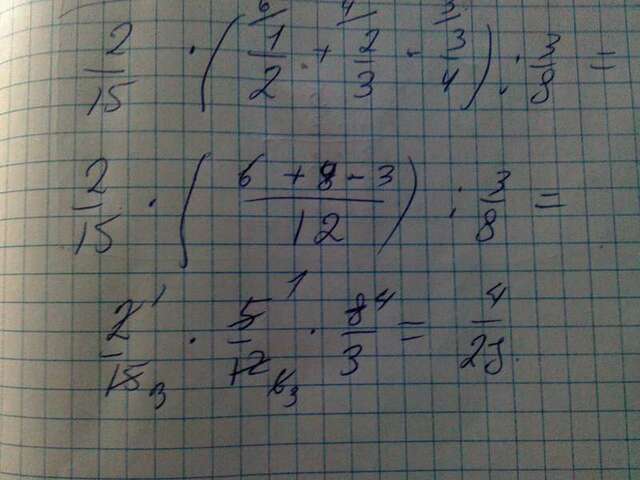 6 4 3
2/15 · (1/2 + 2/3 - 3/4) : 3/8 =
2/15 · (6 + 8 - 3 / 12) : 3/8 =
2 1/15 3 · 5 1/12 6 3 · 8 4/3 = 4/27